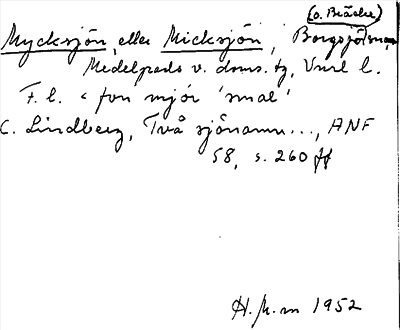 (o. Bräcke)
Mycksjön, eller Micksjön, Borgsjö sn
Medelpads v. doms. tg, Vnrl l.
F. l. < fvn mjór 'smal'
C. Lindberg, Två sjönamn..., ANF
58, s. 260 ff
H. M-m 1952